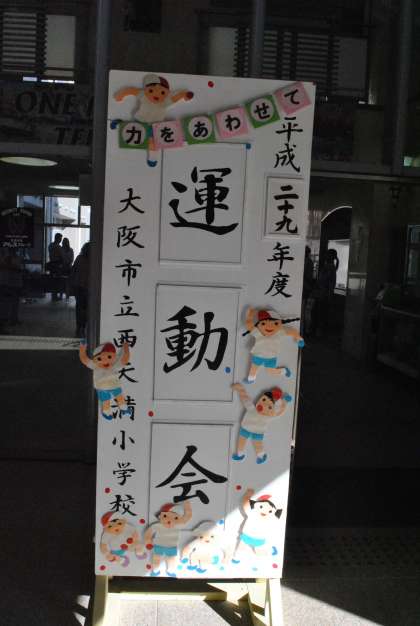 力をあわせて
平成二十九年度
運動会
大阪市立西天満小学校
ONE